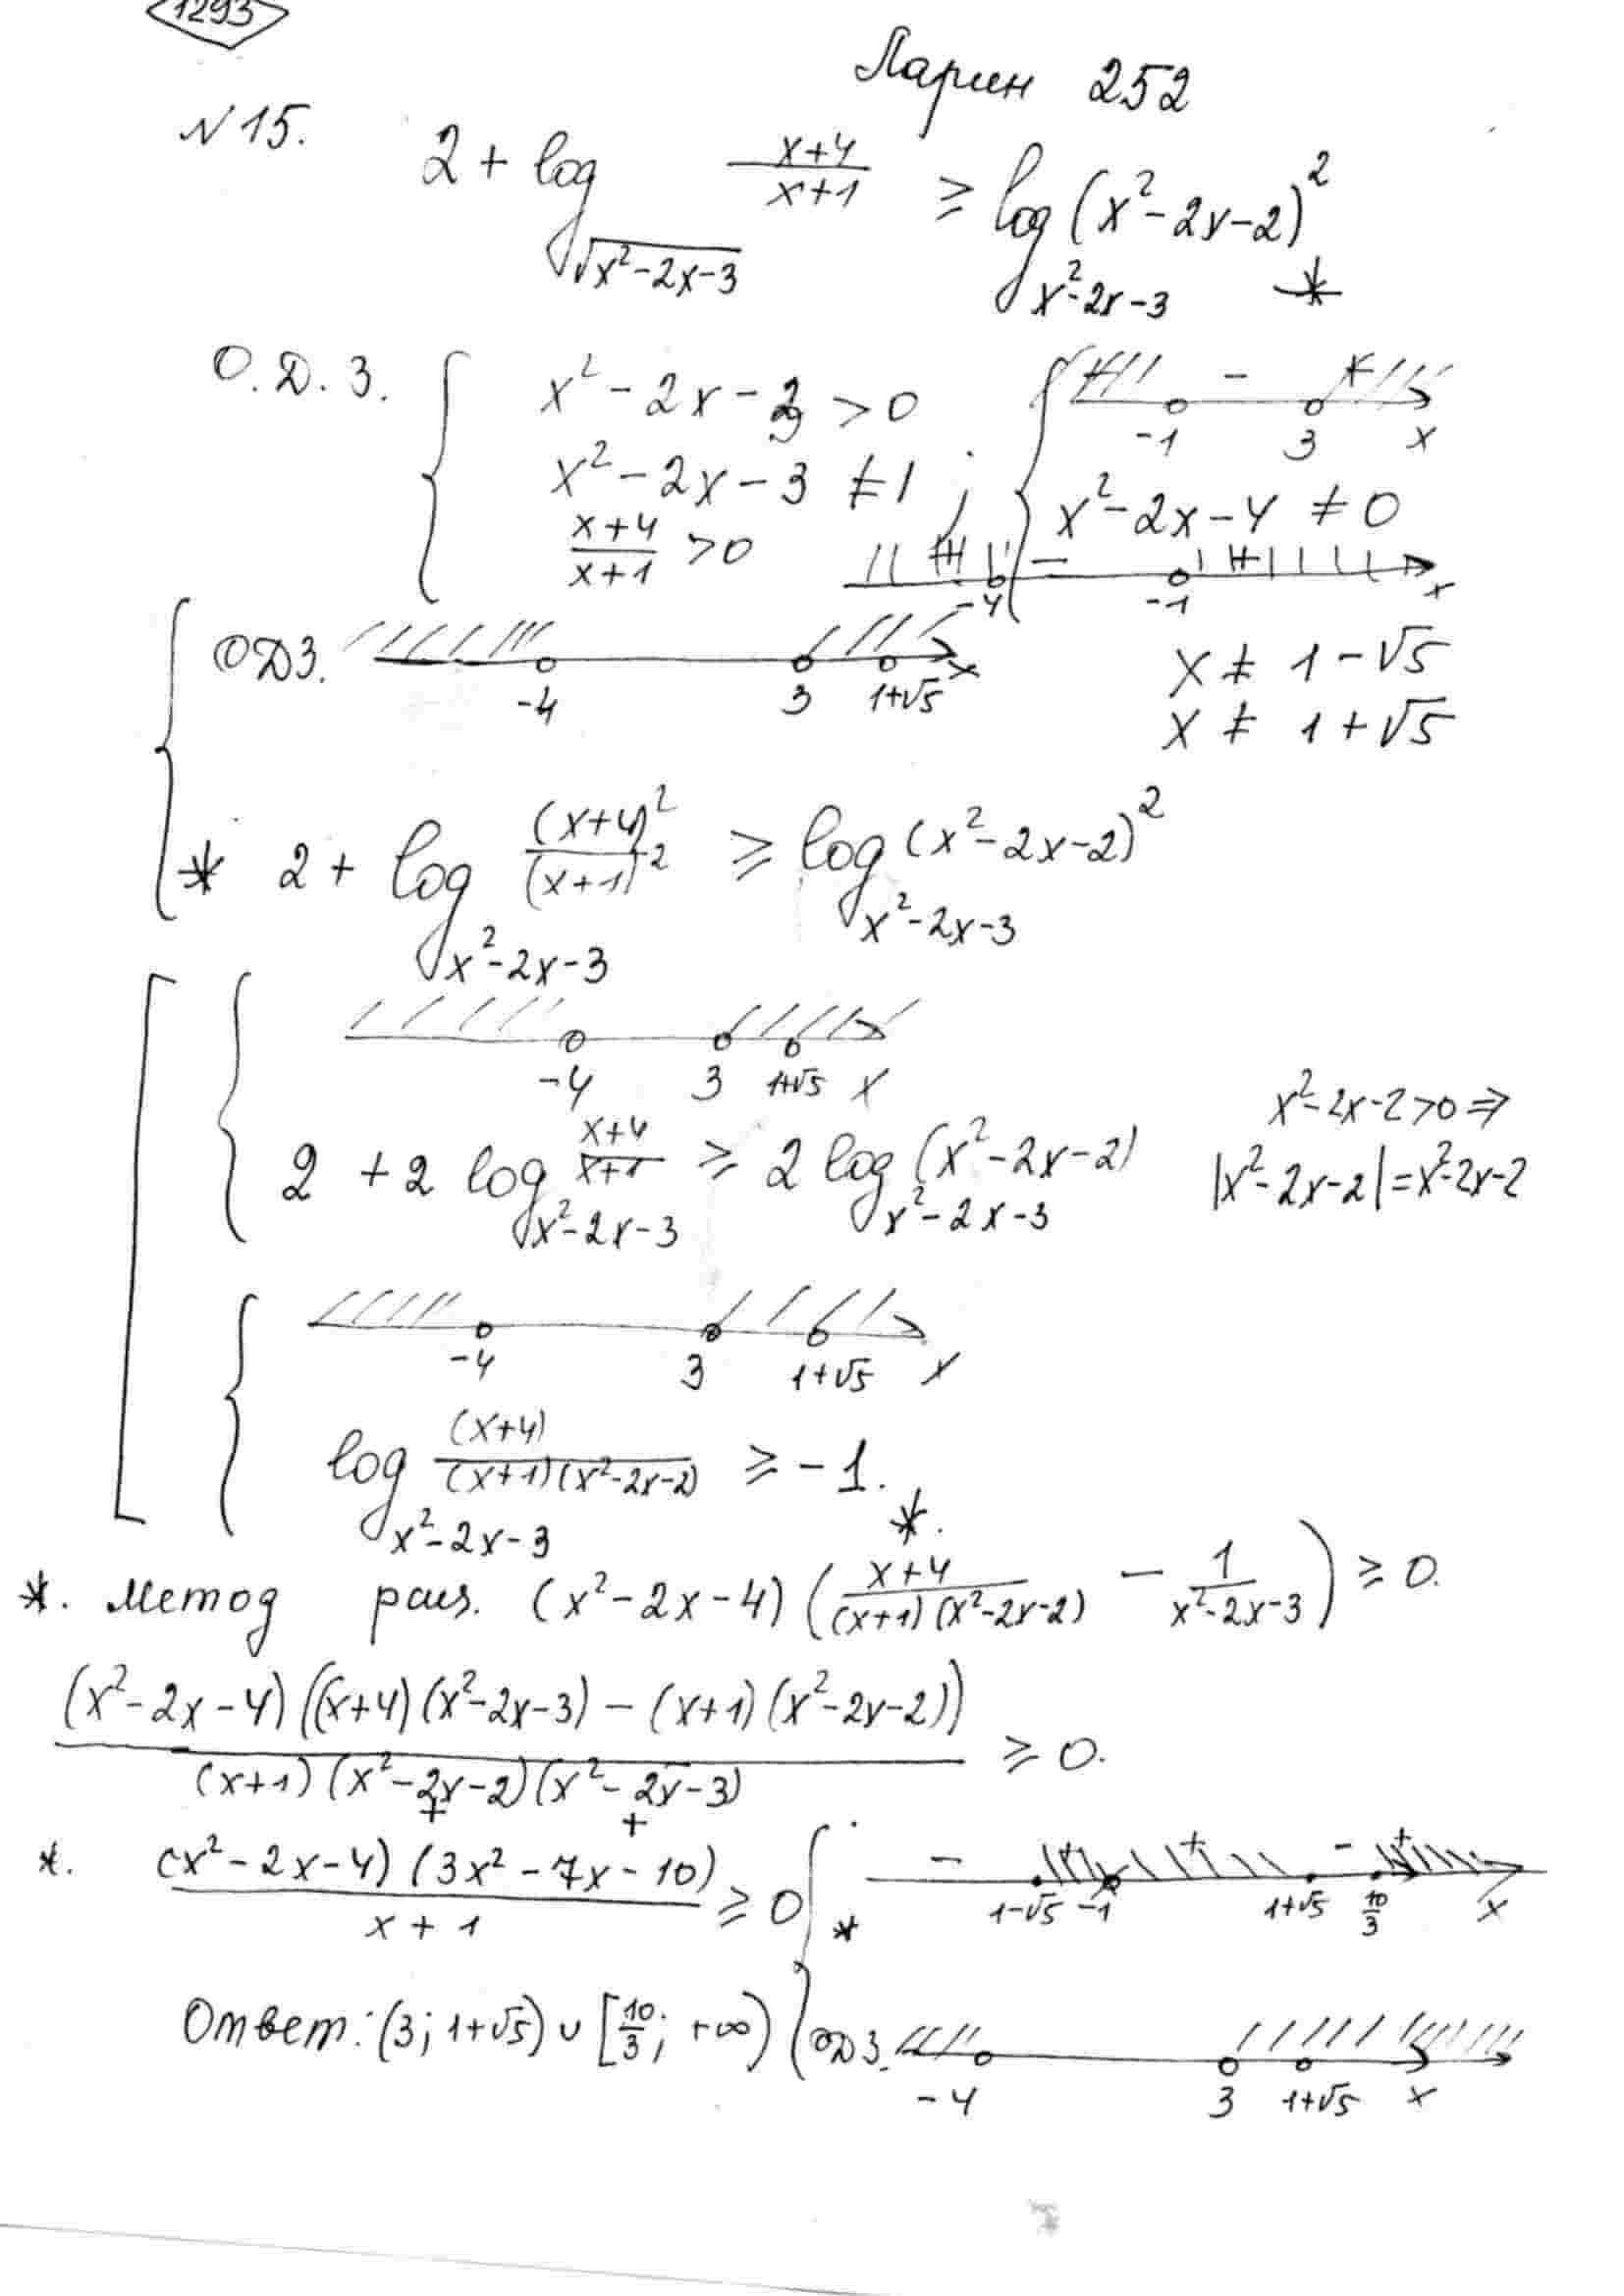 1293
Ларин 252
N 15. 2 + log_{√(x²-2x-3)} (x+4)/(x+1) ≥ log_{x²-2x-3} (x²-2x-2)² *
О.Д.З. { x²-2x-3 > 0 { + - + -1 3 x
x²-2x-3 ≠ 1 ; x²-2x-4 ≠ 0
(x+4)/(x+1) > 0 + - + -4 -1 x
{ ОДЗ. -4 3 1+√5 x x ≠ 1-√5
x ≠ 1+√5
* 2 + log_{x²-2x-3} (x+4)²/(x+1)² ≥ log_{x²-2x-3} (x²-2x-2)²
[ { -4 3 1+√5 x
x²-2x-2>0 ⇒
2 + 2 log_{x²-2x-3} (x+4)/(x+1) ≥ 2 log_{x²-2x-3} (x²-2x-2) |x²-2x-2| = x²-2x-2
{ -4 3 1+√5 x
log_{x²-2x-3} (x+4)/((x+1)(x²-2x-2)) ≥ -1. *.
*. Метод рац. (x²-2x-4) ((x+4)/((x+1)(x²-2x-2)) - 1/(x²-2x-3)) ≥ 0.
(x²-2x-4)((x+4)(x²-2x-3) - (x+1)(x²-2x-2)) / ((x+1)(x²-2x-2)(x²-2x-3)) ≥ 0.
+ +
*. (x²-2x-4)(3x²-7x-10) / (x+1) ≥ 0 { * - + + - + 1-√5 -1 1+√5 10/3 x
Ответ: (3; 1+√5) ∪ [10/3; +∞) ОДЗ. -4 3 1+√5 x